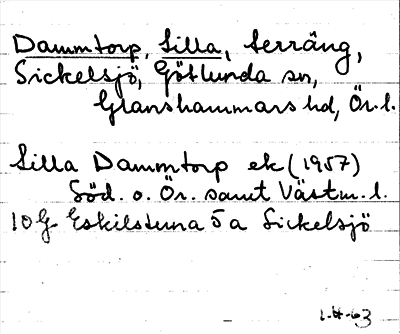 Dammtorp, Lilla, terräng,
Sickelsjö, Götlunda sn,
Glanshammars hd, Ör. l.
Lilla Dammtorp ek (1957)
Söd. o. Ör. samt Västm. l.
10 G Eskilstuna 5 a Sickelsjö